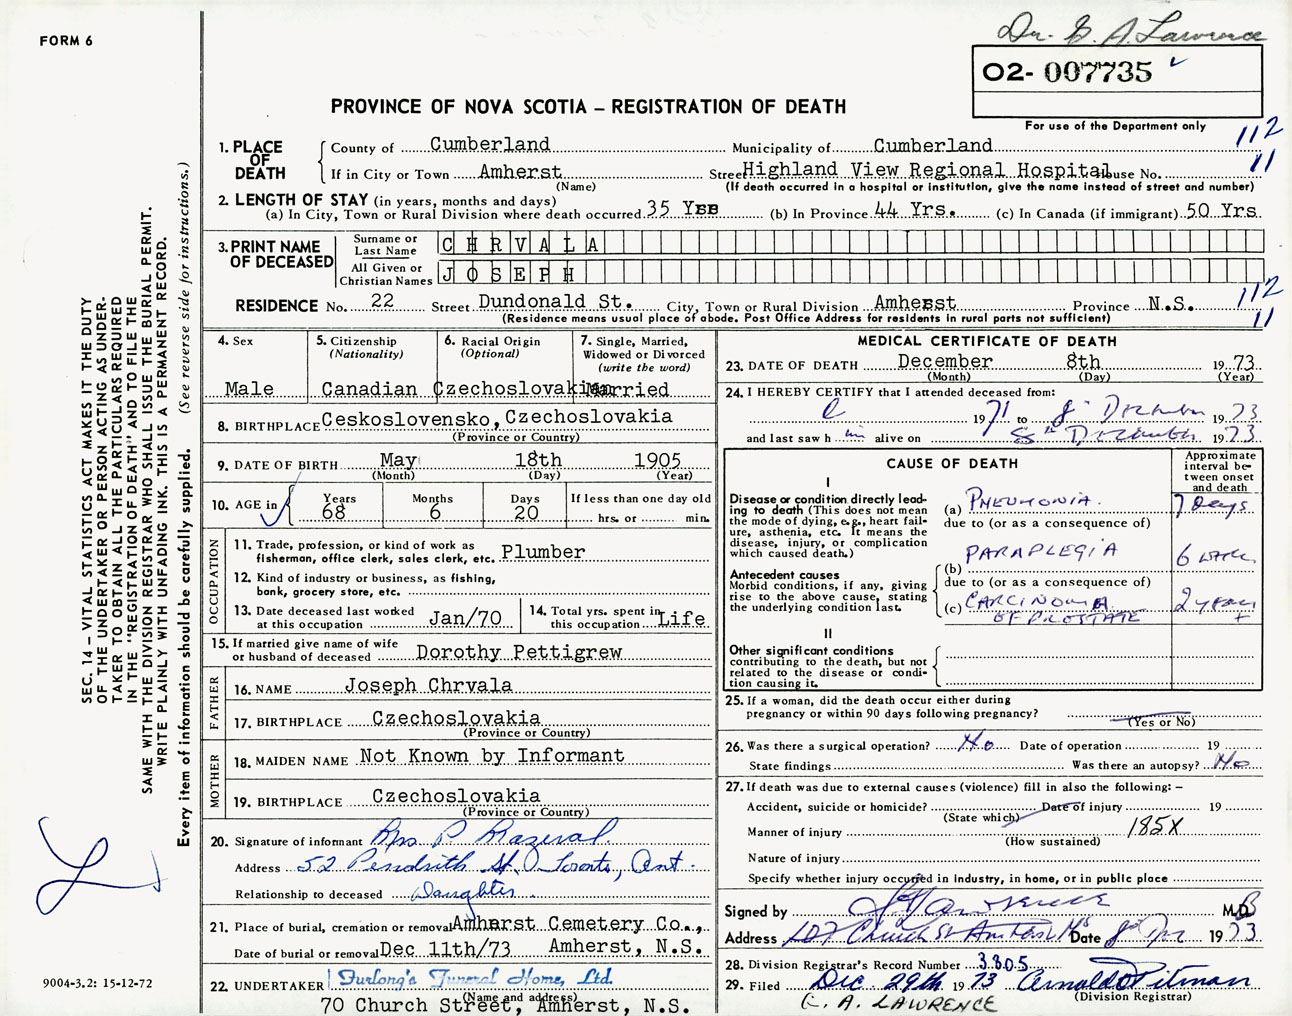 Dr. G. A. Lawrence
FORM 6
02- 007735
For use of the Department only
PROVINCE OF NOVA SCOTIA – REGISTRATION OF DEATH
112
11
1. PLACE OF DEATH
County of Cumberland Municipality of Cumberland
If in City or Town Amherst Street Highland View Regional Hospital House No.
(Name) (If death occurred in a hospital or institution, give the name instead of street and number)
2. LENGTH OF STAY (in years, months and days)
(a) In City, Town or Rural Division where death occurred 35 Yrs (b) In Province 44 Yrs. (c) In Canada (if immigrant) 50 Yrs.
3. PRINT NAME OF DECEASED
Surname or Last Name CHRVALA
All Given or Christian Names JOSEPH
RESIDENCE No. 22 Street Dundonald St. City, Town or Rural Division Amherst Province N.S. 112
(Residence means usual place of abode. Post Office Address for residents in rural parts not sufficient) 11
4. Sex
Male
5. Citizenship (Nationality)
Canadian
6. Racial Origin (Optional)
Czechoslovakian
7. Single, Married, Widowed or Divorced (write the word)
Married
8. BIRTHPLACE Ceskoslovensko, Czechoslovakia
(Province or Country)
9. DATE OF BIRTH May 18th 1905
(Month) (Day) (Year)
10. AGE in Years Months Days If less than one day old
68 6 20 hrs. or min.
OCCUPATION
11. Trade, profession, or kind of work as fisherman, office clerk, sales clerk, etc. Plumber
12. Kind of industry or business, as fishing, bank, grocery store, etc.
13. Date deceased last worked at this occupation Jan/70
14. Total yrs. spent in this occupation Life
15. If married give name of wife or husband of deceased Dorothy Pettigrew
FATHER
16. NAME Joseph Chrvala
17. BIRTHPLACE Czechoslovakia
(Province or Country)
MOTHER
18. MAIDEN NAME Not Known by Informant
19. BIRTHPLACE Czechoslovakia
(Province or Country)
20. Signature of informant Mrs P
Address 52 Pendrith St. Toronto, Ont.
Relationship to deceased Daughter.
21. Place of burial, cremation or removal Amherst Cemetery Co.,
Date of burial or removal Dec 11th/73 Amherst, N.S.
22. UNDERTAKER Furlong's Funeral Home, Ltd.
(Name and address)
70 Church Street, Amherst, N.S.
MEDICAL CERTIFICATE OF DEATH
23. DATE OF DEATH December 8th 1973
(Month) (Day) (Year)
24. I HEREBY CERTIFY that I attended deceased from:
1971 to 8th December 1973
and last saw him alive on 8th December 1973
CAUSE OF DEATH
Approximate interval between onset and death
I
Disease or condition directly leading to death (This does not mean the mode of dying, e.g., heart failure, asthenia, etc. It means the disease, injury, or complication which caused death.)
(a) PNEUMONIA. 7 Days
due to (or as a consequence of)
Antecedent causes
Morbid conditions, if any, giving rise to the above cause, stating the underlying condition last.
(b) PARAPLEGIA 6 weeks
due to (or as a consequence of)
(c) CARCINOMA OF PROSTATE 2 years +
II
Other significant conditions contributing to the death, but not related to the disease or condition causing it.
25. If a woman, did the death occur either during pregnancy or within 90 days following pregnancy?
(Yes or No)
26. Was there a surgical operation? No Date of operation 19
State findings Was there an autopsy? No
27. If death was due to external causes (violence) fill in also the following: –
Accident, suicide or homicide? Date of injury 19
(State which)
Manner of injury 185X
(How sustained)
Nature of injury
Specify whether injury occurred in industry, in home, or in public place
Signed by Lawrence M.D.
Address 107 Church St Amherst NS Date 8th Dec 1973
28. Division Registrar's Record Number 3805
29. Filed Dec 29th 1973 Arnold Pitman
(Division Registrar)
G. A. LAWRENCE
SEC. 14 – VITAL STATISTICS ACT MAKES IT THE DUTY
OF THE UNDERTAKER OR PERSON ACTING AS UNDER-
TAKER TO OBTAIN ALL THE PARTICULARS REQUIRED
IN THE "REGISTRATION OF DEATH" AND TO FILE THE
SAME WITH THE DIVISION REGISTRAR WHO SHALL ISSUE THE BURIAL PERMIT.
WRITE PLAINLY WITH UNFADING INK. THIS IS A PERMANENT RECORD.
Every item of information should be carefully supplied. (See reverse side for instructions.)
9004-3.2: 15-12-72